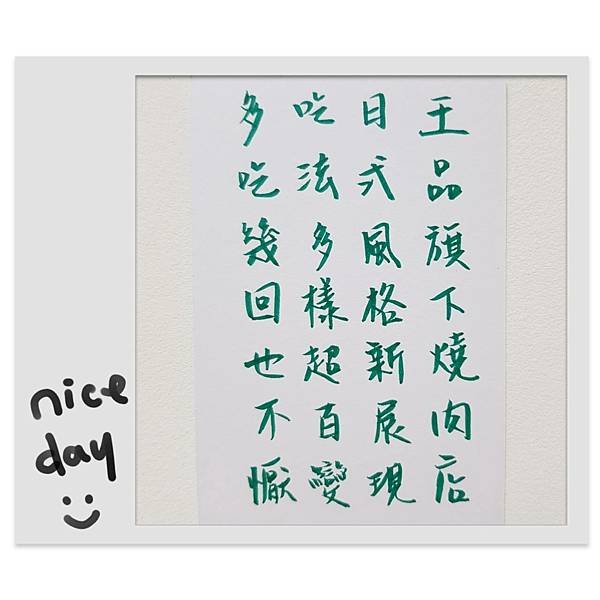 王品旗下燒肉店
日式風格新展現
吃法多樣超百變
多吃幾回也不懨
nice
day